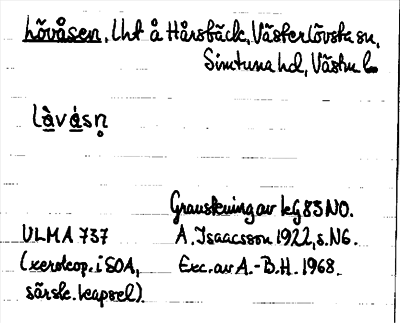 hövåsen, Lht å Hårsbäck, Västerlövsta sn,
Simtuna hd, Västm l
làvás
Granskning av kg 83 NO.
ULMA 737 A. Isaacsson 1922, s. N6.
(xerokop. i SOA, Exc. av A.-B.H. 1968.
särsk. kapsel).